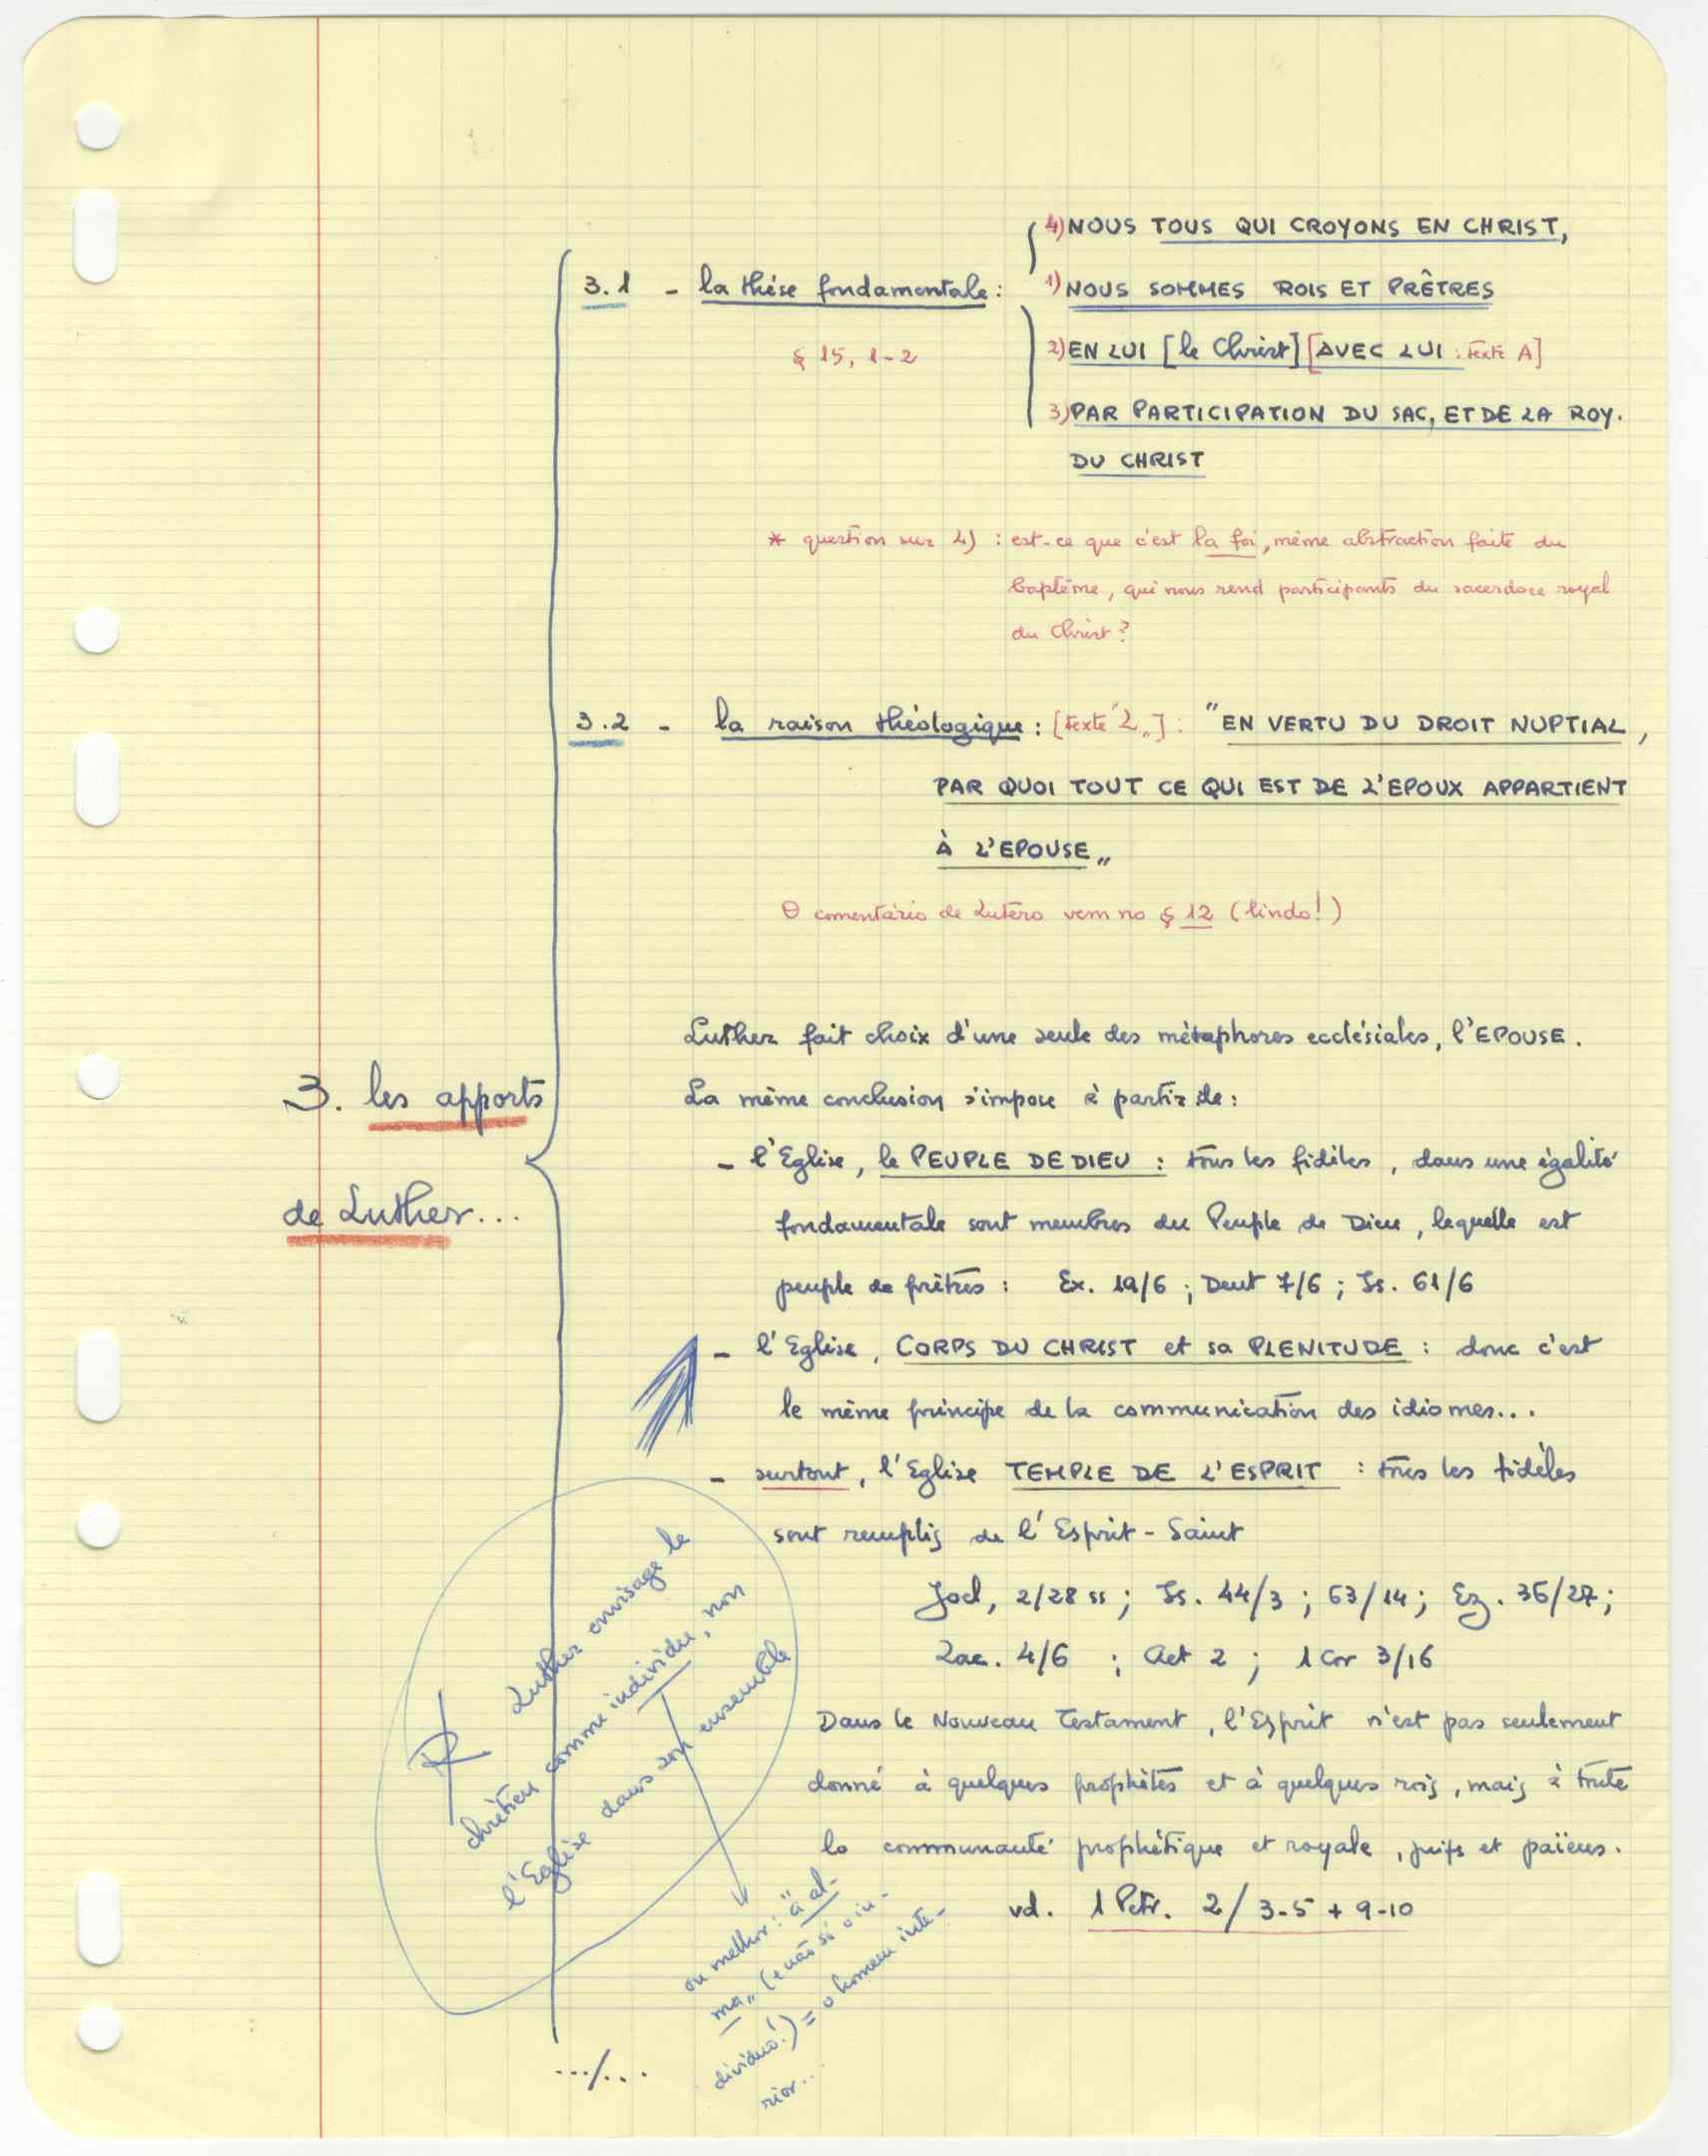 3. les apports
de Luther...
3.1 - la thèse fondamentale :
§ 15, 1-2
4) NOUS TOUS QUI CROYONS EN CHRIST,
1) NOUS SOMMES ROIS ET PRÊTRES
2) EN LUI [le Christ] [AVEC LUI : texte A]
3) PAR PARTICIPATION DU SAC, ET DE LA ROY.
DU CHRIST
* question sur 4) : est-ce que c'est la foi, même abstraction faite du
baptême, qui nous rend participants du sacerdoce royal
du Christ ?
3.2 - la raison théologique : [texte "2„] : "EN VERTU DU DROIT NUPTIAL,
PAR QUOI TOUT CE QUI EST DE L'EPOUX APPARTIENT
À L'EPOUSE„
O comentário de Lutero vem no § 12 (lindo!)
Luther fait choix d'une seule des métaphores ecclésiales, l'EPOUSE.
La même conclusion s'impose à partir de :
- l'Eglise, le PEUPLE DE DIEU : tous les fidèles, dans une égalité
fondamentale sont membres du Peuple de Dieu, lequelle est
peuple de prêtres : Ex. 19/6 ; Deut 7/6 ; Is. 61/6
- l'Eglise, CORPS DU CHRIST et sa PLENITUDE : donc c'est
le même principe de la communication des idiomes...
- surtout, l'Eglise TEMPLE DE L'ESPRIT : tous les fidèles
sont remplis de l'Esprit-Saint
Joel, 2/28 ss ; Is. 44/3 ; 63/14 ; Ez. 36/27 ;
Zac. 4/6 ; Act 2 ; 1 Cor 3/16
Dans le Nouveau Testament, l'Esprit n'est pas seulement
donné à quelques prophètes et à quelques rois, mais à toute
la communauté prophétique et royale, juifs et païens.
vd. 1 Petr. 2/3-5 + 9-10
Luther envisage le
chrétien comme individu, non
l'Eglise dans son ensemble
ou melhor : "a al-
ma„ (e não só o in-
dividuo!) = o homem inte-
rior...
.../...